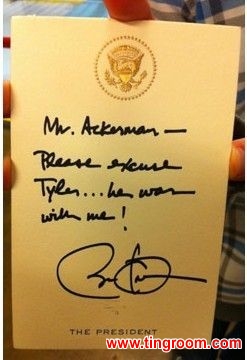 Mr. Ackerman —
Please excuse
Tyler... he was
with me!
THE PRESIDENT
www.tingroom.com